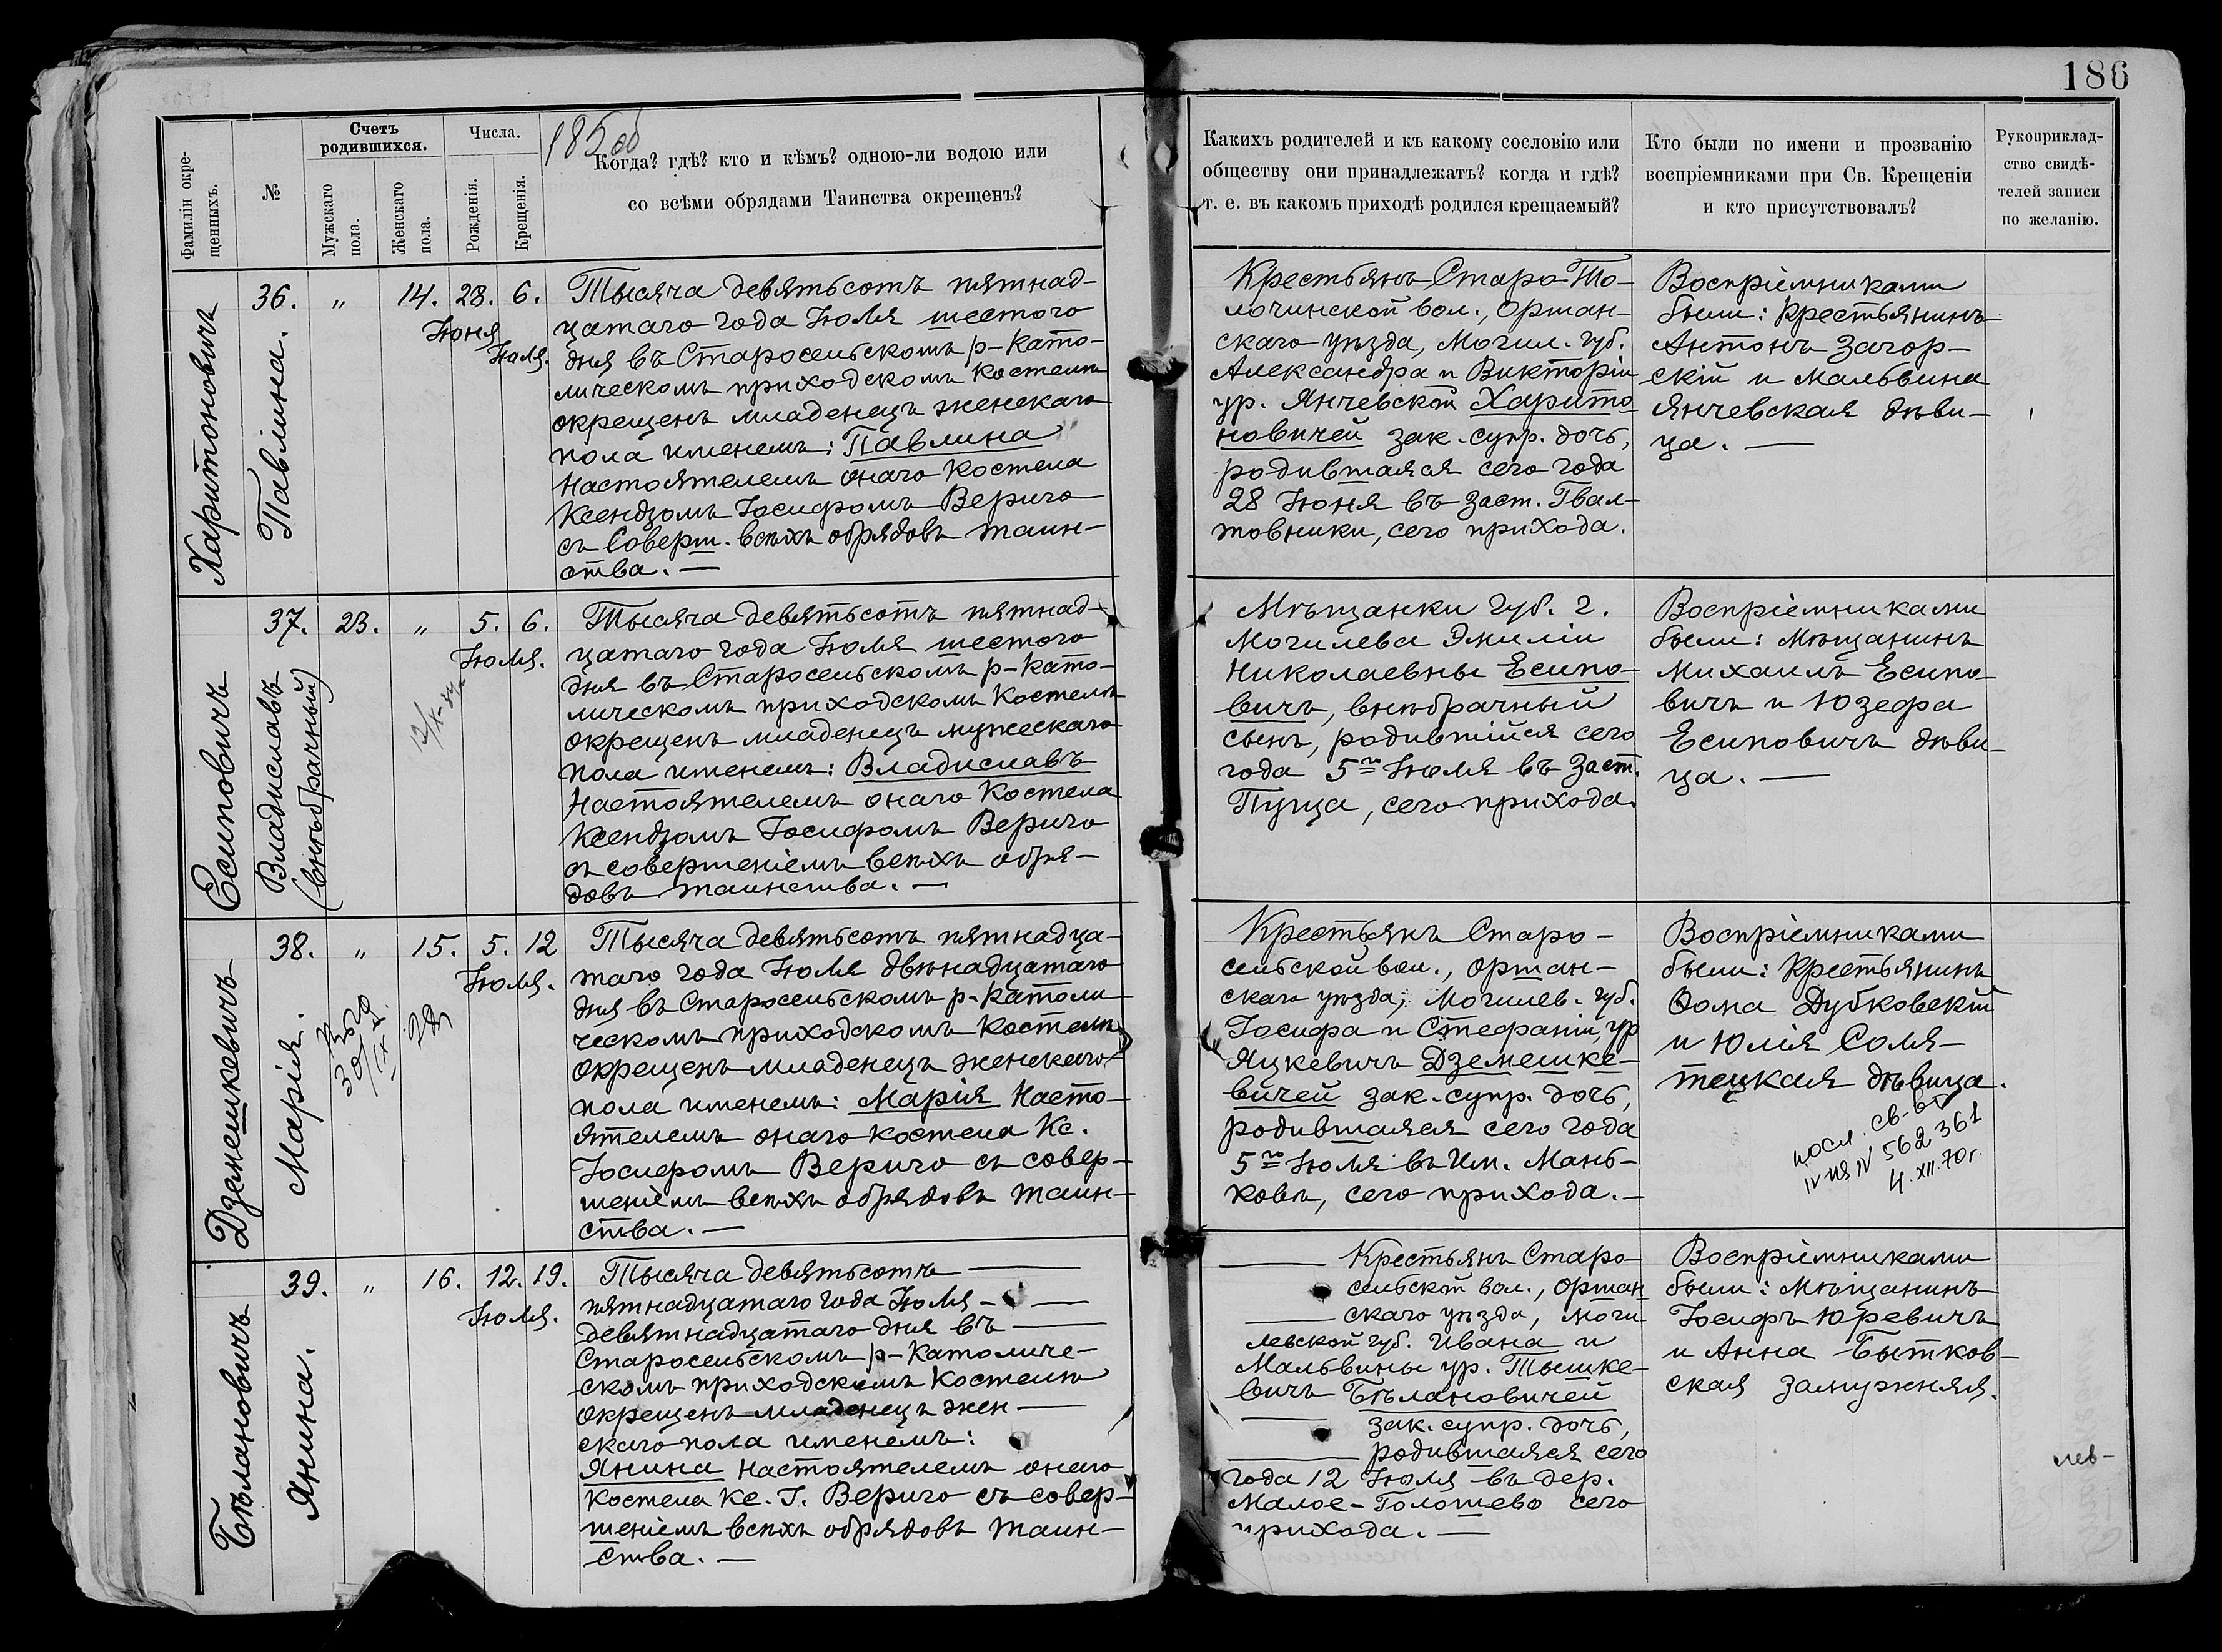 186
185 об
Фамиліи окре-
щенныхъ.
№
Счетъ
родившихся.
Мужскаго
пола.
Женскаго
пола.
Числа.
Рожденія.
Крещенія.
Когда? гдѣ? кто и кѣмъ? одною-ли водою или
со всѣми обрядами Таинства окрещенъ?
Какихъ родителей и къ какому сословію или
обществу они принадлежатъ? когда и гдѣ?
т. е. въ какомъ приходѣ родился крещаемый?
Кто были по имени и прозванію
воспріемниками при Св. Крещеніи
и кто присутствовалъ?
Рукоприклад-
ство свидѣ-
телей записи
по желанію.
Харитоновичъ
36.
Павлина.
"
14.
28.
Іюня
6.
Іюля.
Тысяча девятьсотъ пятнад-
цатаго года Іюля шестого
дня въ Старосельскомъ р-като-
лическомъ приходскомъ костелѣ
окрещенъ младенецъ женскаго
пола именемъ: Павлина
Настоятелемъ онаго костела
Ксендзомъ Іосифомъ Вериго
съ соверш. всѣхъ обрядовъ таин-
ства. —
Крестьянъ Старо-То-
лочинской вол., Оршан-
скаго уѣзда, Могил. губ.
Александра и Викторіи
ур. Янчевской Харито-
новичей зак. супр. дочь,
родившаяся сего года
28 Іюня въ заст. Гвал-
товники, сего прихода.
Воспріемниками
были: Крестьянинъ
Антонъ Загор-
скій и Мальвина
Янчевская дѣви-
ца. —
Есиповичъ
37.
Владиславъ
(внѣбрачный)
23.
"
5.
6.
Іюля.
Тысяча девятьсотъ пятнад-
цатаго года Іюля шестого
дня въ Старосельскомъ р-като-
лическомъ приходскомъ костелѣ
окрещенъ младенецъ мужескаго
пола именемъ: Владиславъ
Настоятелемъ онаго костела
Ксендзомъ Іосифомъ Вериго
съ совершеніемъ всѣхъ обря-
довъ таинства. —
Мѣщанки губ. г.
Могилева Эмиліи
Николаевны Есипо-
вичъ, внѣбрачный
сынъ, родившійся сего
года 5го Іюля въ заст.
Пуща, сего прихода.
Воспріемниками
были: Мѣщанинъ
Михаилъ Есипо-
вичъ и Юзефа
Есиповичъ дѣви-
ца. —
Дземешкевичъ
38.
Марія.
"
15.
5.
12
Іюля.
Тысяча девятьсотъ пятнадца-
таго года Іюля двѣнадцатаго
дня въ Старосельскомъ р-католи-
ческомъ приходскомъ костелѣ
окрещенъ младенецъ женскаго
пола именемъ: Марія Насто-
ятелемъ онаго костела Кс.
Іосифомъ Вериго съ совер-
шеніемъ всѣхъ обрядовъ таин-
ства. —
Крестьянъ Старо-
сельской вол., Оршан-
скаго уѣзда, Могилев. губ.
Іосифа и Стефаніи, ур
Яцкевичъ Дземешке-
вичей зак. супр. дочь,
родившаяся сего года
5го Іюля въ Им. Мань-
ковѣ, сего прихода. —
Воспріемниками
были: Крестьянинъ
Ѳома Дубковскій
и Юлія Соля-
тецкая дѣвица.
посл. св-во
IV ИЯ N 562361
4. XII. 70г.
Бѣлановичъ
39.
Янина.
"
16.
12.
19.
Іюля.
Тысяча девятьсотъ —
пятнадцатаго года Іюля —
девятнадцатаго дня въ —
Старосельскомъ р-католиче-
скомъ приходскомъ костелѣ
окрещенъ младенецъ жен —
скаго пола именемъ:
Янина Настоятелемъ онаго
костела Кс. І. Вериго съ совер-
шеніемъ всѣхъ обрядовъ таин-
ства. —
— Крестьянъ Старо-
сельской вол., Оршан
— скаго уѣзда, Моги-
левской губ. Ивана и
Мальвины ур. Тышке-
вичъ Бѣлановичей
— зак. супр. дочь,
— родившаяся сего
года 12 Іюля въ дер.
Малое-Голошево сего
прихода. —
Воспріемниками
были: Мѣщанинъ
Іосифъ Юревичъ
и Анна Бытков-
ская замужняя.